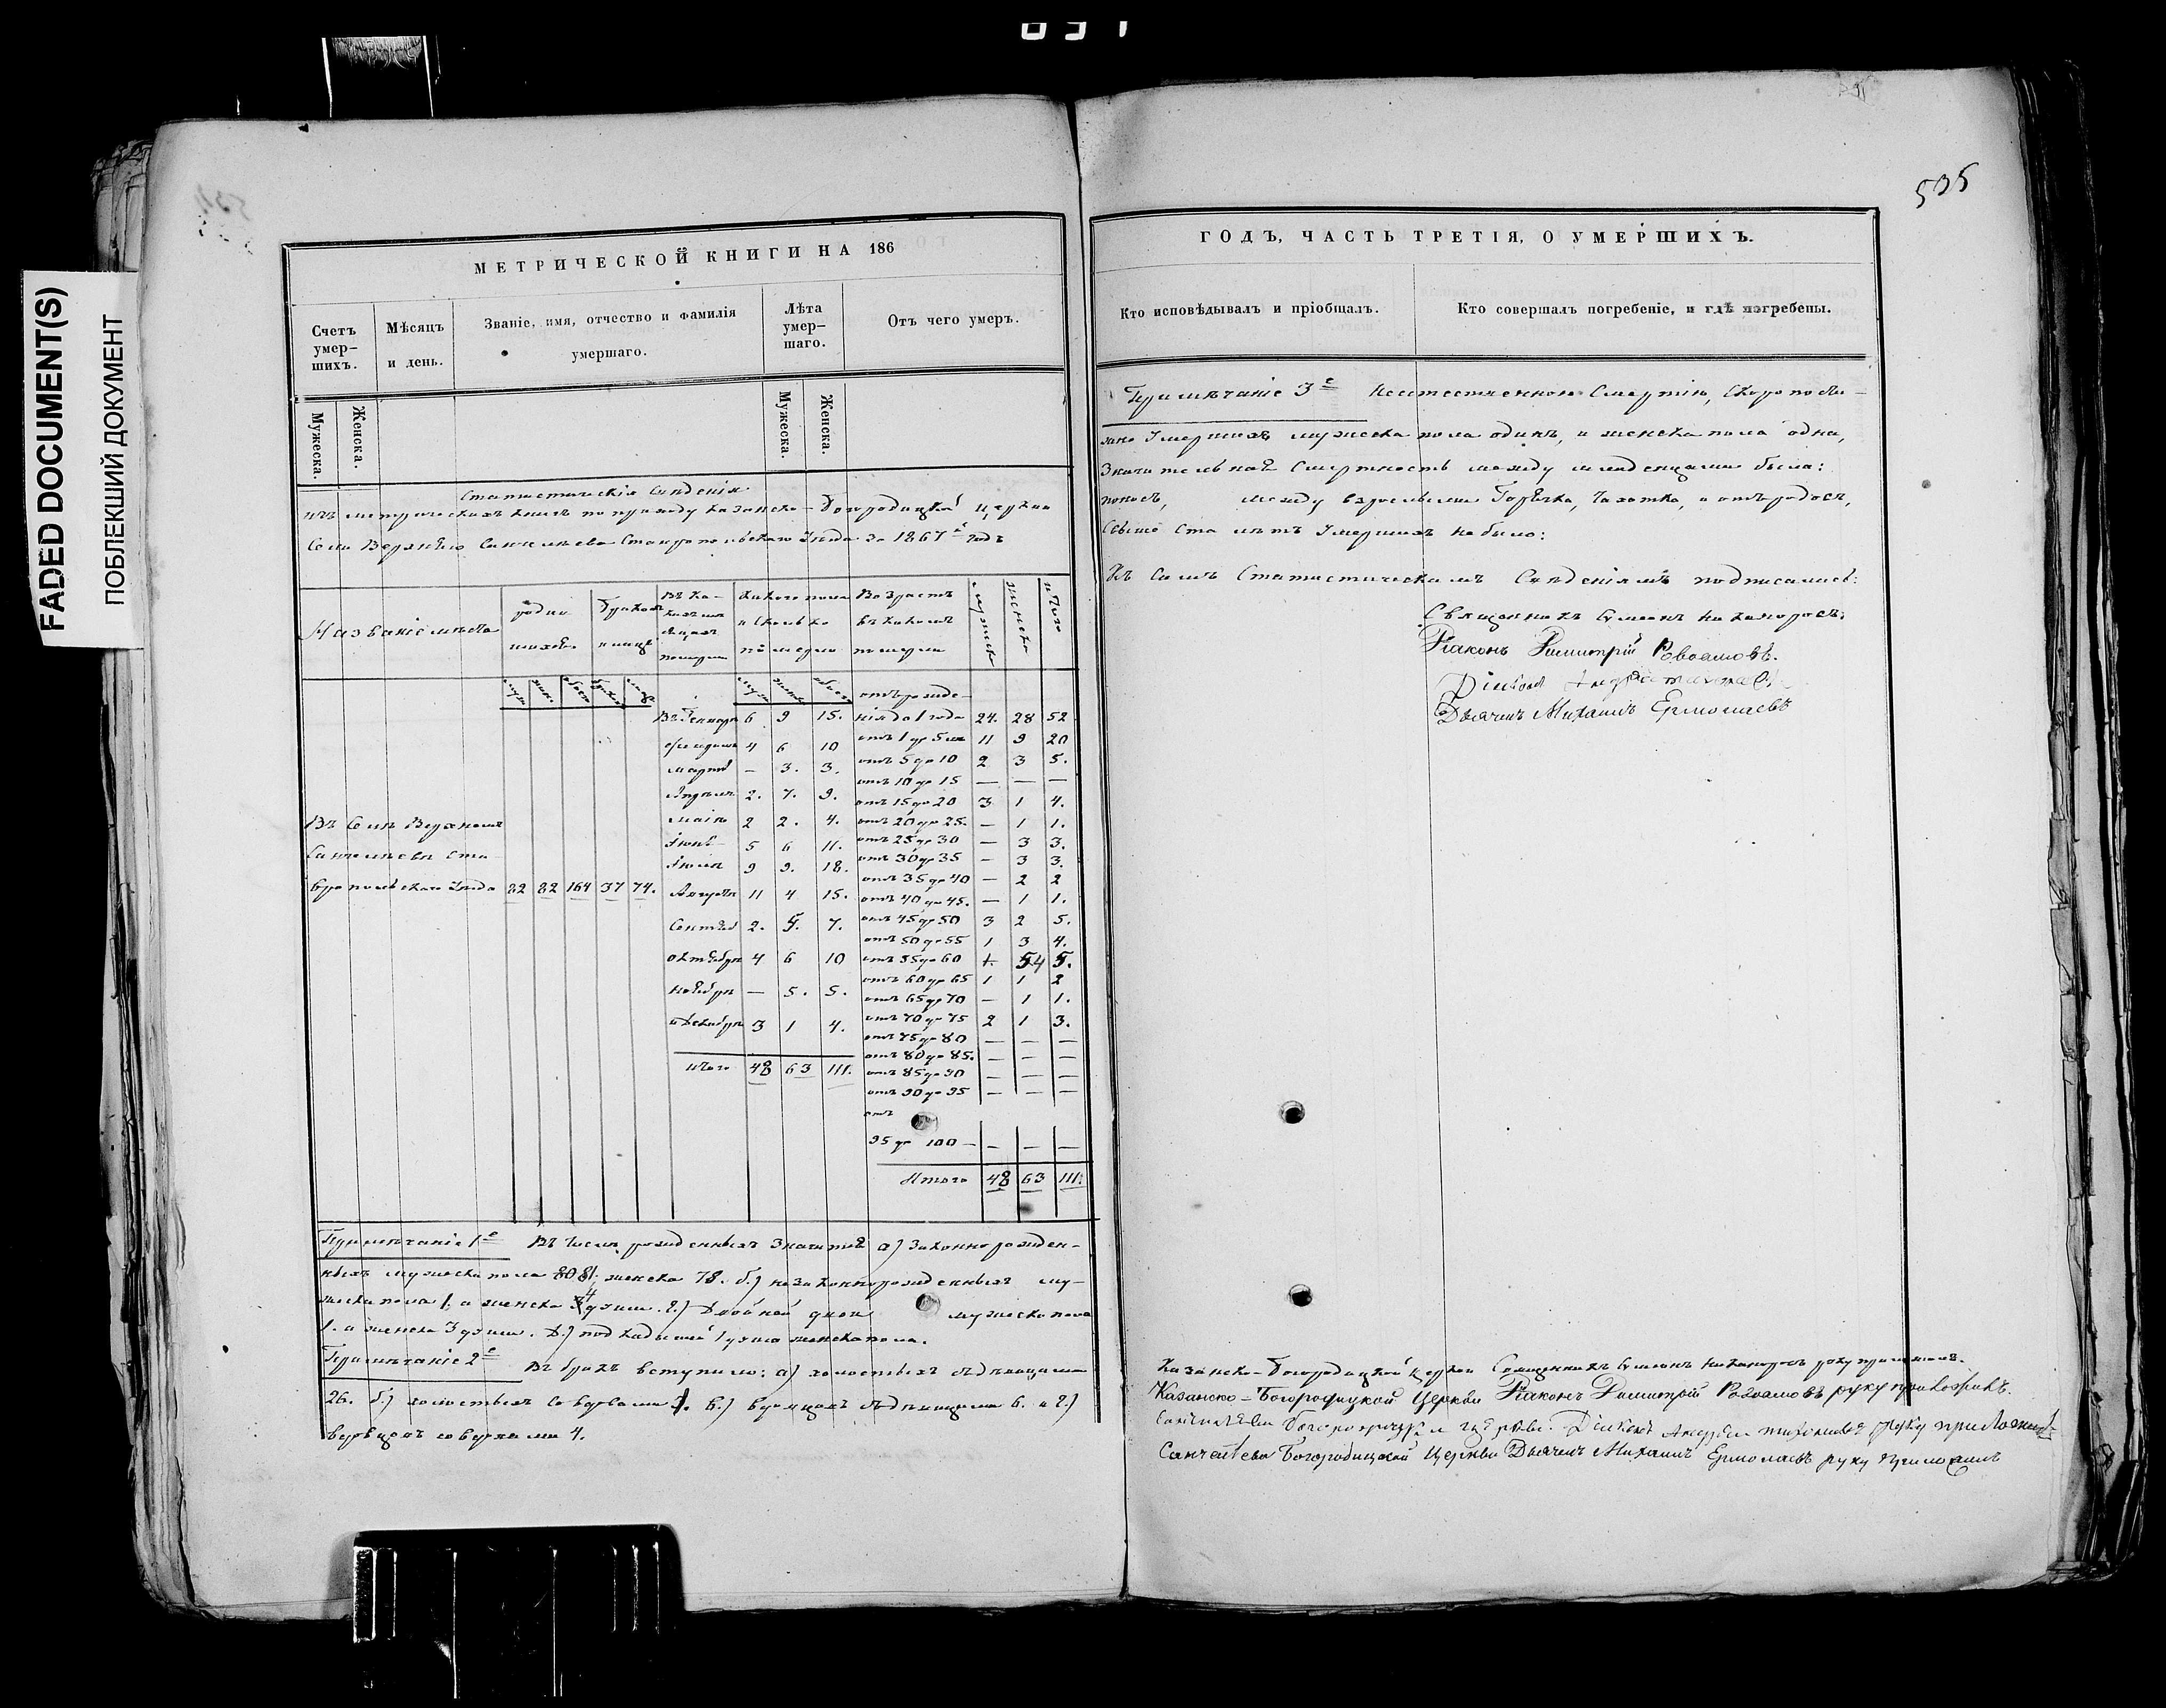 FADED DOCUMENT(S)
ПОБЛЕКШИЙ ДОКУМЕНТ
МЕТРИЧЕСКОЙ КНИГИ НА 186
Счетъ умер-шихъ.
Мѣсяцъ и день.
Званіе, имя, отчество и фамилія умершаго.
Лѣта умер-шаго.
Отъ чего умеръ.
Мужеска. Женска. Мужеска. Женска.
Статистическія Свѣденія
изъ метрическихъ книгъ по приходу Казанско-Богородицкой церкви
Села Верхняго Санчелѣева Ставропольскаго Уѣзда за 1867й годъ
Названіе мѣста
родив
шихся.
Браков
и лицъ
Въ ка-
кихъ мѣ
сяцахъ
померли
Какого пола
и сколько
померло
Возрастъ
въ какомъ
померли
мужска
женска
итого
отъ рожде-
Въ Генварѣ 6 9 15. нія до 1 года 24. 28 52
4 6 10 отъ 1 до 5 11 9 20
мартѣ — 3. 3. отъ 5 до 10 2 3 5.
отъ 10 до 15 — — —
Апрѣлѣ 2. 7. 9. отъ 15 до 20 3 1 4.
Въ Селѣ Верхнемъ маіѣ 2 2. 4. отъ 20 до 25. — 1 1.
Іюнѣ 5 6 11. отъ 25 до 30 — 3 3.
Санчелѣевѣ Ста- Іюлѣ 9 9. 18. отъ 30 до 35 — 3 3.
отъ 35 до 40 — 2 2
вропольскаго Уѣзда 82 82 164 37 74. Августѣ 11 4 15. отъ 40 до 45. — 1 1.
Сентяб 2. 5. 7. отъ 45 до 50 3 2 5.
отъ 50 до 55 1 3 4.
октябрѣ 4 6 10 отъ 55 до 60 1. 4 5.
отъ 60 до 65 1 1 2
ноябрѣ — 5. 5. отъ 65 до 70 — 1 1.
и Декабрѣ 3 1 4. отъ 70 до 75 2 1 3.
отъ 75 до 80 — — —
отъ 80 до 85. — — —
итого 48 63 111. отъ 85 до 90 — — —
отъ 90 до 95 — — —
отъ
95 до 100 — — — —
Итого 48 63 111.
Примѣчаніе 1е Въ числѣ рожденныхъ значится а) Законнорожден-
ныхъ мужеска пола 81, женска 78. б.) незаконнорожденныхъ му-
жеска пола 1, а женска 4 душъ. в.) Двойной двои мужеска пола
1. а женска 3 душъ. д.) подкидышей 1 душа женска пола.
Примѣчаніе 2е Въ бракъ вступило: а) холостыхъ съ дѣвицами
26. б.) холостыхъ со вдовами 1. в.) вдовцовъ съ дѣвицами 6. и г.)
вдовцовъ со вдовами 4.
505
ГОДЪ, ЧАСТЬ ТРЕТІЯ, О УМЕРШИХЪ.
Кто исповѣдывалъ и пріобщалъ.
Кто совершалъ погребеніе, и гдѣ погребены.
Примѣчаніе 3е Неестественною Смертію, Скоропости-
жно Умершихъ мужеска пола одинъ, и женска пола одна,
Значительная Смертность между младенцами была:
поносъ, между взрослыми Горячка, Чахотка, и отъ родовъ,
Свыше Ста лѣтъ Умершихъ не было:
Къ симъ Статистическимъ Свѣденіямъ подписались:
Священникъ Симеонъ Никаноровъ.
Діаконъ Димитрій Ровоамовъ.
Дьячекъ Михаилъ Ермолаевъ
Казанско-Богородицкой церкви Священникъ Симеонъ Никаноровъ руку приложилъ.
Казанско-Богородицкой Церкви Діаконъ Димитрій Ровоамовъ руку приложилъ.
Санчелѣева Богородицкой Церкви руку приложилъ
Санчелѣева Богородицкой Церкви Дьячекъ Михаилъ Ермолаевъ руку приложилъ